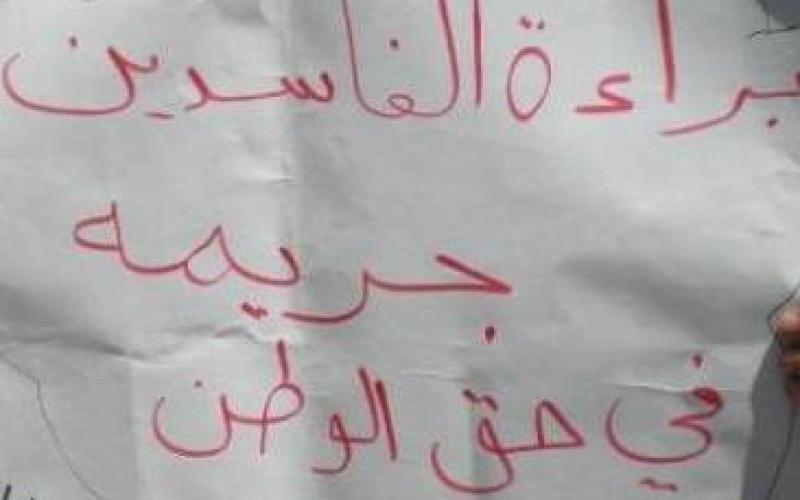 براءة الفاسدين
جريمه
في حق الوطن